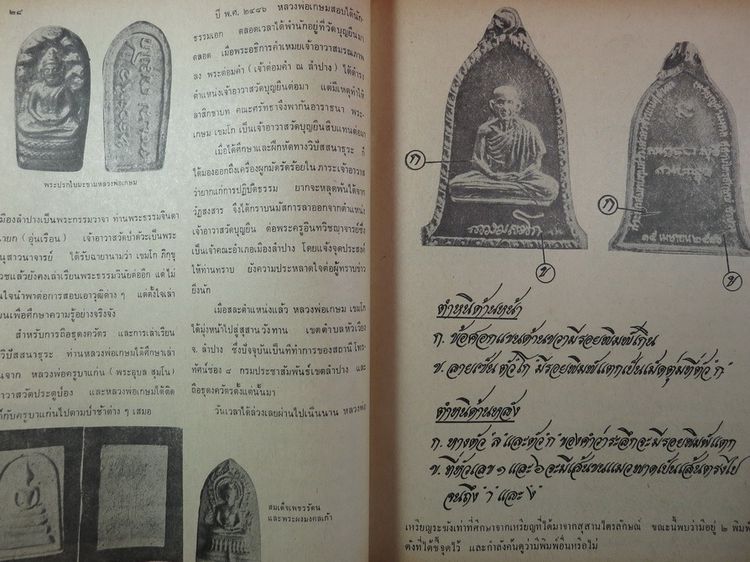 ๒๘
พระปรกใบมะขามหลวงพ่อเกษม
เมืองลำปางเป็นพระกรรมวาจา ท่านพระธรรมจินดา
นายก (อุ่นเรือน) เจ้าอาวาสวัดป่าตัวะเป็นพระ
นุสาวนาจารย์ ได้รับฉายานามว่า เขมโก ภิกขุ
วชแล้วยังคงเล่าเรียนพระธรรมวินัยต่ออีก แต่ไม่
นใจนำพาต่อการสอบเอาวุฒิต่าง ๆ แต่ตั้งใจเล่า
ยนเพื่อศึกษาความรู้อย่างจริงจัง
สำหรับการถือธุดงควัตร และการเล่าเรียน
วิปัสสนาธุระ ท่านหลวงพ่อเกษมได้ศึกษาเล่า
นจาก หลวงพ่อครูบาแก่น (พระอุบล สุมโน)
าวาสวัดประตูป่อง และหลวงพ่อเกษมได้ติด
ก็กับครูบาแก่นไปตามป่าช้าต่าง ๆ เสมอ
ปี พ.ศ. ๒๔๗๖ หลวงพ่อเกษมสอบได้นัก
ธรรมเอก ตลอดเวลาได้พำนักอยู่ที่วัดบุญยืนมา
ตลอด เมื่อพระอธิการคำเหมยเจ้าอาวาสมรณภาพ
ลง พระต่อมคำ (เจ้าต่อมคำ ณ ลำปาง) ได้ดำรง
ตำแหน่งเจ้าอาวาสวัดบุญยืนต่อมา แต่มีเหตุทำให้
ลาสิกขาบท คณะศรัทธาจึงพากันอาราธนา พระ
เกษม เขมโก เป็นเจ้าอาวาสวัดบุญยืนสืบแทนต่อมา
เมื่อได้ศึกษาและฝึกหัดทางวิปัสสนาธุระ ก็
ได้มองออกถึงเครื่องผูกมัดรัดร้อยใน ภาระเจ้าอาวาส
ว่ายากแก่การปฏิบัติธรรม ยากจะหลุดพ้นได้จาก
วัฏสงสาร จึงได้กราบนมัสการลาออกจากตำแหน่ง
เจ้าอาวาสวัดบุญยืน ต่อพระครูอินทวิชญาจารย์ซึ่ง
เป็นเจ้าคณะอำเภอเมืองลำปาง โดยแจ้งจุดประสงค์
ให้ท่านทราบ ยังความประหลาดใจต่อผู้ทราบข่าว
ยิ่งนัก
เมื่อสละตำแหน่งแล้ว หลวงพ่อเกษม เขมโก
ได้มุ่งหน้าไปสู่สุสานวังทาน เขตตำบลหัวเวียง
จ. ลำปาง ซึ่งปัจจุบันเป็นที่ทำการของสถานีโทร-
ทัศน์ช่อง ๘ กรมประชาสัมพันธ์เขตลำปาง และ
ถือธุดงควัตรตั้งแต่นั้นมา
วันเวลาได้ล่วงเลยผ่านไปเนิ่นนาน หลวงพ่อ
สมเด็จเพชรรัตน
และพระผงมงกลเก้า
ก
ข
ก
ข
ตำหนิด้านหน้า
ก. ข้อศอกแขนด้านขวามีรอยพิมพ์เกิน
ข. ลายเซ็น ตัว"โก" มีรอยพิมพ์แตกเป็นเม็ดตุ่มที่ตัว"ก"
ตำหนิด้านหลัง
ก. หางตัว "ส" และตัว"ก" ของคำว่าระลึกจะมีรอยพิมพ์แตก
ข. ที่ตัวเลข ๑ และ ๖ จะมีเส้นขนแมวพาดเป็นเส้นตรงไป
จนถึง
เหรียญระฆังเท่าที่ศึกษาจากเหรียญที่ได้มาจากสุสานไตรลักษณ์ ขณะนี้พบว่ามีอยู่ ๒ พิมพ์
ดังที่ได้ชี้จุดไว้ และกำลังค้นดูว่ามีพิมพ์อื่นหรือไม่